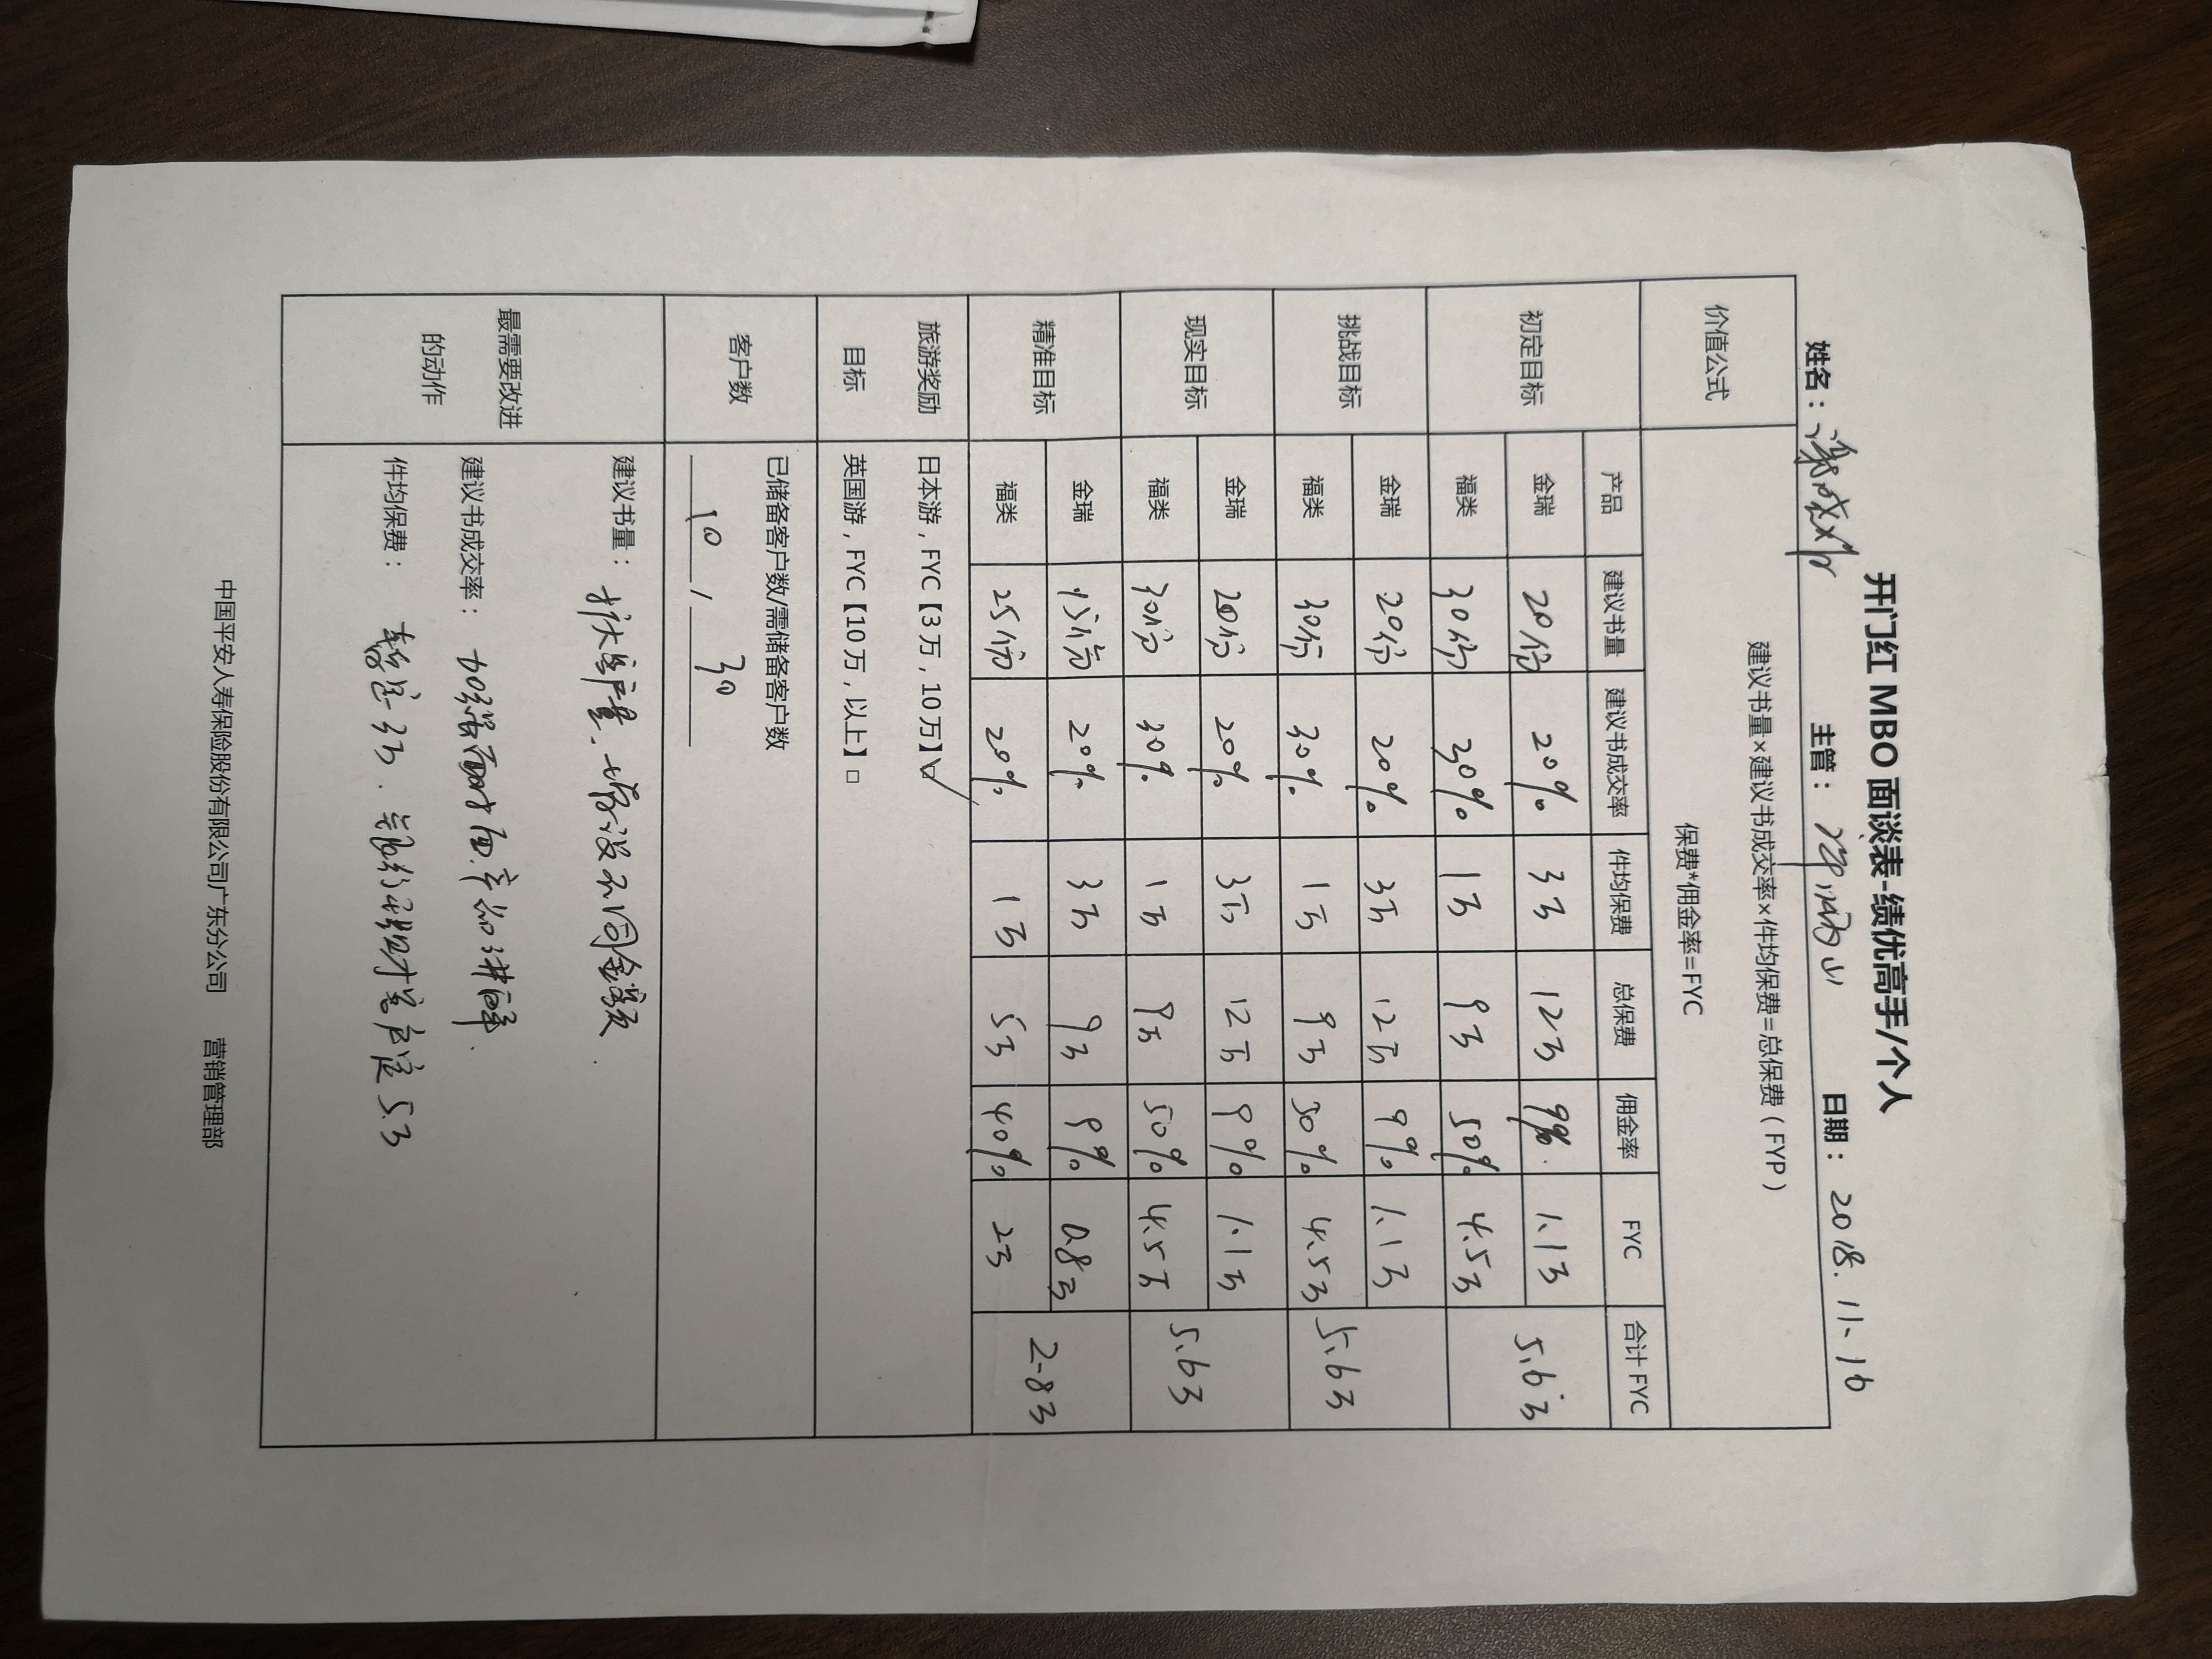 开门红 MBO 面谈表-绩优高手/个人
姓名： 主管： 日期：2018.11.16
价值公式 建议书量×建议书成交率×件均保费=总保费（FYP）
保费*佣金率=FYC
产品 建议书量 建议书成交率 件均保费 总保费 佣金率 FYC 合计 FYC
初定目标 金瑞 20份 20% 3万 12万 9% 1.1万 5.6万
福类 30份 30% 1万 9万 50% 4.5万
挑战目标 金瑞 20份 20% 3万 12万 9% 1.1万 5.6万
福类 30份 30% 1万 9万 50% 4.5万
现实目标 金瑞 20份 20% 3万 12万 9% 1.1万 5.6万
福类 30份 30% 1万 9万 50% 4.5万
精准目标 金瑞 15份 20% 3万 9万 9% 0.8万 2.8万
福类 25份 20% 1万 5万 40% 2万
旅游奖励 日本游，FYC【3 万，10 万】√
目标 英国游，FYC【10 万，以上】□
客户数 已储备客户数/需储备客户数
10 / 30
最需要改进
的动作
建议书量： 扩大客户量，增设不同金额
建议书成交率： 加强面对面 的讲解.
件均保费： 3万. 客户定5万
中国平安人寿保险股份有限公司广东分公司 营销管理部